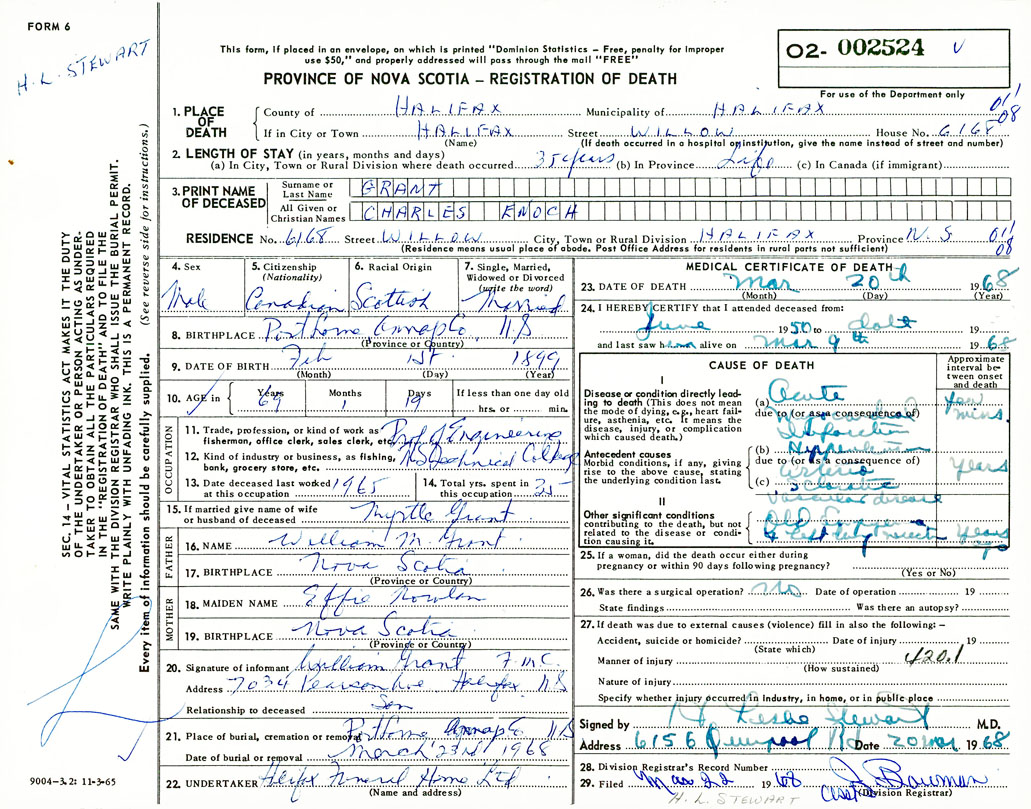 FORM 6
H. L. STEWART
This form, if placed in an envelope, on which is printed "Dominion Statistics – Free, penalty for improper
use $50," and properly addressed will pass through the mail "FREE"
PROVINCE OF NOVA SCOTIA – REGISTRATION OF DEATH
02- 002524
For use of the Department only
1. PLACE OF DEATH { County of HALIFAX Municipality of HALIFAX 011 08
If in City or Town HALIFAX Street WILLOW House No. 6168
(Name) (If death occurred in a hospital or institution, give the name instead of street and number)
2. LENGTH OF STAY (in years, months and days)
(a) In City, Town or Rural Division where death occurred 35 years (b) In Province Life (c) In Canada (if immigrant)
3. PRINT NAME OF DECEASED
Surname or Last Name GRANT
All Given or Christian Names CHARLES ENOCH
RESIDENCE No. 6168 Street WILLOW City, Town or Rural Division HALIFAX Province N.S 011 08
(Residence means usual place of abode. Post Office Address for residents in rural parts not sufficient)
SEC. 14 – VITAL STATISTICS ACT MAKES IT THE DUTY
OF THE UNDERTAKER OR PERSON ACTING AS UNDER-
TAKER TO OBTAIN ALL THE PARTICULARS REQUIRED
IN THE "REGISTRATION OF DEATH" AND TO FILE THE
SAME WITH THE DIVISION REGISTRAR WHO SHALL ISSUE THE BURIAL PERMIT.
WRITE PLAINLY WITH UNFADING INK. THIS IS A PERMANENT RECORD.
Every item of information should be carefully supplied. (See reverse side for instructions.)
4. Sex Male
5. Citizenship (Nationality) Canadian
6. Racial Origin Scottish
7. Single, Married, Widowed or Divorced (write the word) Married
8. BIRTHPLACE Port Lorne Annap Co N S
(Province or Country)
9. DATE OF BIRTH Feb 1st 1899
(Month) (Day) (Year)
10. AGE in Years 69 Months 1 Days 19 If less than one day old
hrs. or min.
OCCUPATION
11. Trade, profession, or kind of work as fisherman, office clerk, sales clerk, etc. Prof of Engineering
12. Kind of industry or business, as fishing, bank, grocery store, etc. N.S Technical College
13. Date deceased last worked at this occupation 1965
14. Total yrs. spent in this occupation 35
15. If married give name of wife or husband of deceased Myrtle Grant
FATHER
16. NAME William M. Grant
17. BIRTHPLACE Nova Scotia
(Province or Country)
MOTHER
18. MAIDEN NAME Effie Nowlan
19. BIRTHPLACE Nova Scotia
(Province or Country)
20. Signature of informant William Grant F.M.C.
Address 7034 Pearson Ave Halifax N S
Relationship to deceased Son
21. Place of burial, cremation or removal Port Lorne Annap Co N S
Date of burial or removal March 23rd 1968
22. UNDERTAKER Halifax Funeral Home Ltd
(Name and address)
9004–3.2: 11-3-65
MEDICAL CERTIFICATE OF DEATH
23. DATE OF DEATH Mar 20th 1968
(Month) (Day) (Year)
24. I HEREBY CERTIFY that I attended deceased from:
June 1950 to date 19
and last saw h alive on Mar 9th 1968
CAUSE OF DEATH
Approximate interval between onset and death
I
Disease or condition directly leading to death (This does not mean the mode of dying, e.g., heart failure, asthenia, etc. It means the disease, injury, or complication which caused death.)
(a) Acute Myocardial Infarction few mins.
due to (or as a consequence of)
Antecedent causes
Morbid conditions, if any, giving rise to the above cause, stating the underlying condition last.
(b) Hypertension
due to (or as a consequence of) years
(c) Arterio sclerotic vascular disease
II
Other significant conditions contributing to the death, but not related to the disease or condition causing it.
Old years
25. If a woman, did the death occur either during
pregnancy or within 90 days following pregnancy?
(Yes or No)
26. Was there a surgical operation? No Date of operation 19
State findings Was there an autopsy?
27. If death was due to external causes (violence) fill in also the following: –
Accident, suicide or homicide? Date of injury 19
(State which)
Manner of injury 420.1
(How sustained)
Nature of injury
Specify whether injury occurred in industry, in home, or in public place
Signed by H. Leslie Stewart M.D.
Address 6156 Quinpool Rd Date 20 Mar 1968
28. Division Registrar's Record Number
29. Filed Mar 22 1968 Bowman
(Division Registrar)
H. L. STEWART